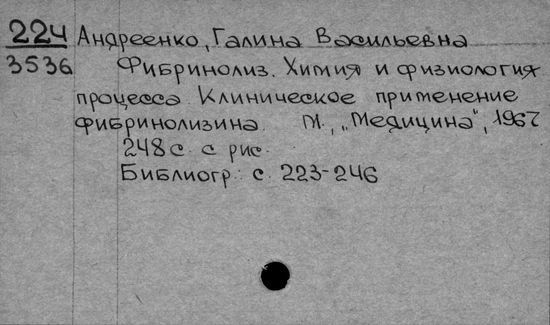 224 Андреенко, Галина Васильевна
3536 Фибринолиз. Химия и физиология
процесса. Клиническое применение
фибринолизина. М., „Медицина", 1967
248 с. с рис.
Библиогр: с. 223-246